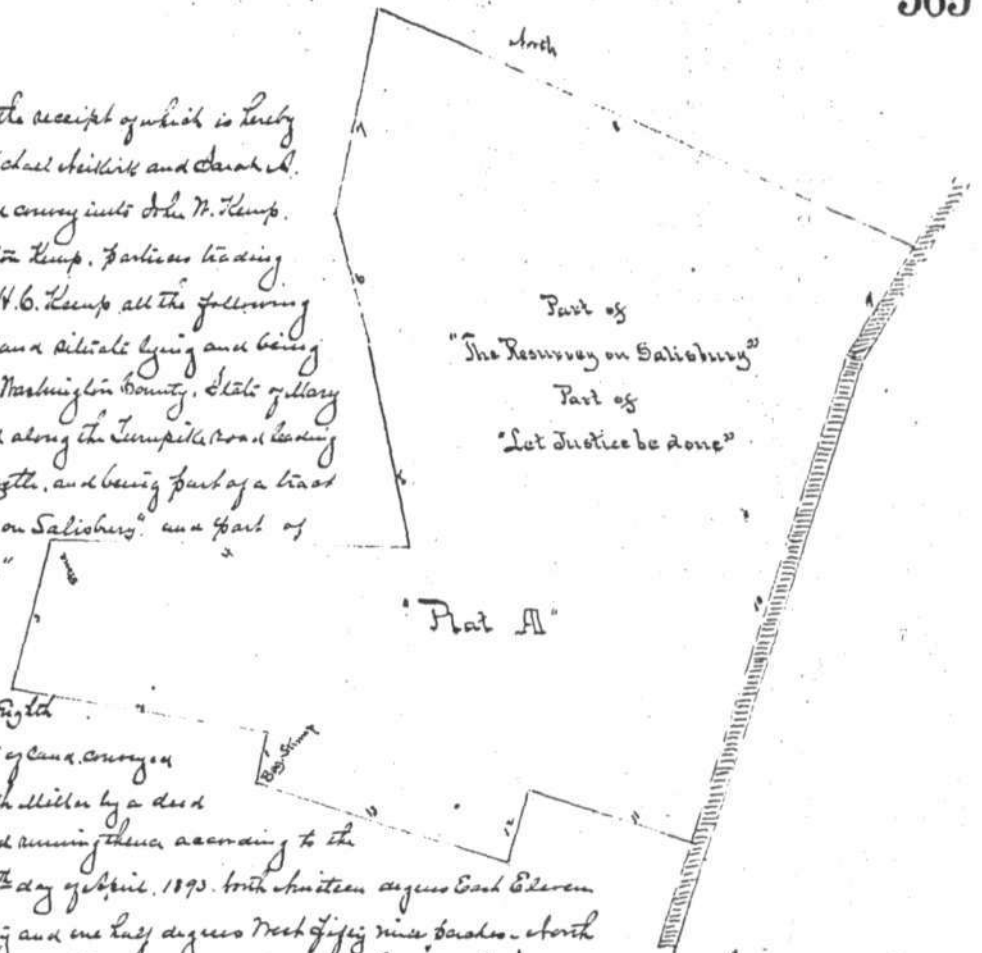 565
North
the receipt of which is hereby
Michael Neikirk and Sarah A.
convey unto John W. Kemp.
Kemp. partners trading
H. C. Kemp all the following
land situate lying and being
Washington County. State of Mary
along the Turnpike road leading
and being part of a tract
on Salisbury" and part of
Part of
"The Resurvey on Salisbury"
Part of
"Let Justice be done"
Stone
"Plat A"
Eighth
of land. conveyed
Miller by a deed
running thence according to the
th day of April. 1893. North Nineteen degrees East Eleven
and one half degrees West Fifty nine perches. North
Beg. Stump
1
2
3
4
5
6
7
8
9
10
11
12
13